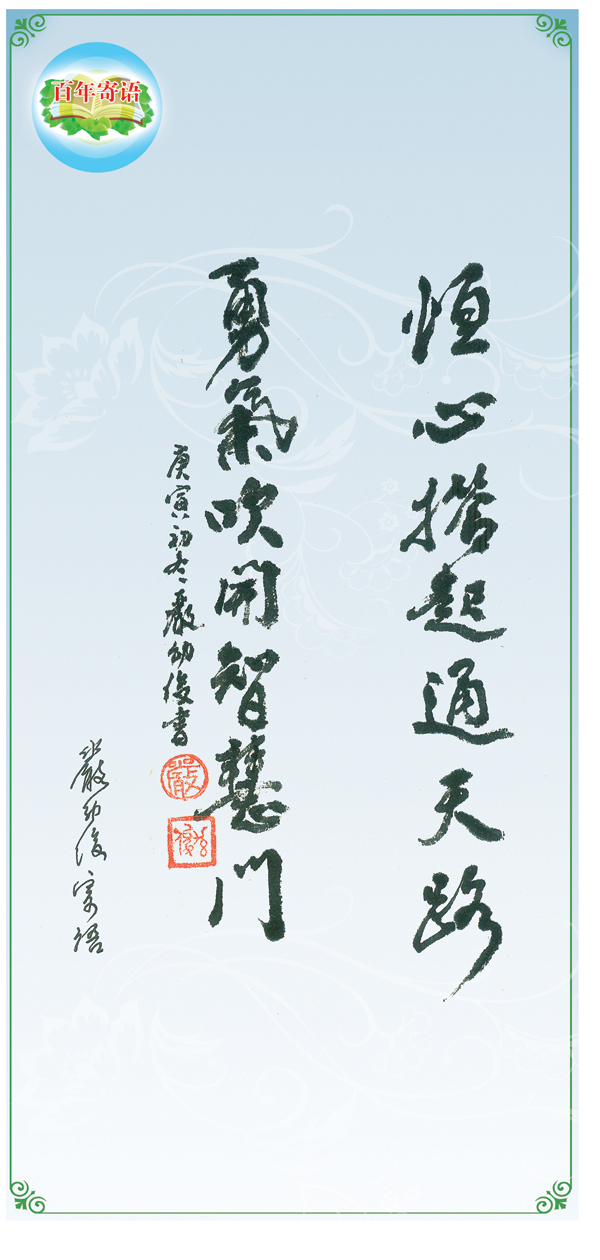 百年寄语
恒心搭起通天路
勇氣吹開智慧門
庚寅初冬嚴幼俊書
嚴
幼俊
嚴幼俊寄语